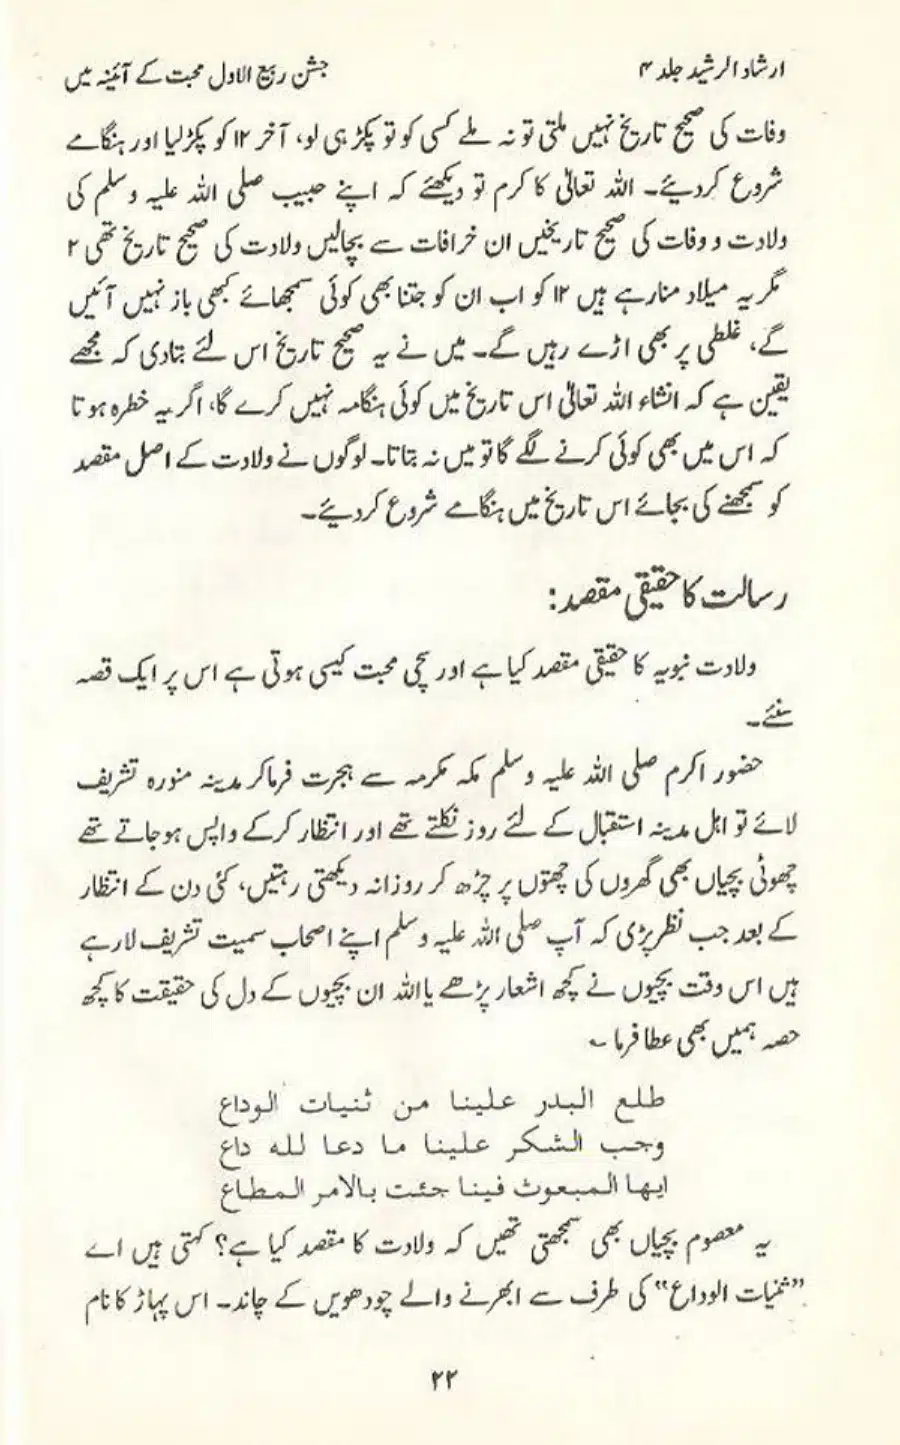 ارشاد الرشید جلد ۴
جشن ربیع الاول محبت کے آئینہ میں
وفات کی صحیح تاریخ نہیں ملتی تو نہ ملے کسی کو تو پکڑ ہی لو، آخر ۱۲ کو پکڑ لیا اور ہنگامے
شروع کردیئے۔ اللہ تعالیٰ کا کرم تو دیکھئے کہ اپنے حبیب صلی اللہ علیہ وسلم کی
ولادت و وفات کی صحیح تاریخیں ان خرافات سے بچالیں ولادت کی صحیح تاریخ تھی ۲
مگر یہ میلاد منا رہے ہیں ۱۲ کو اب ان کو جتنا بھی کوئی سمجھائے کبھی باز نہیں آئیں
گے، غلطی پر بھی اڑے رہیں گے۔ میں نے یہ صحیح تاریخ اس لئے بتادی کہ مجھے
یقین ہے کہ انشاء اللہ تعالیٰ اس تاریخ میں کوئی ہنگامہ نہیں کرے گا، اگر یہ خطرہ ہوتا
کہ اس میں بھی کوئی کرنے لگے گا تو میں نہ بتاتا۔ لوگوں نے ولادت کے اصل مقصد
کو سمجھنے کی بجائے اس تاریخ میں ہنگامے شروع کردیئے۔
رسالت کا حقیقی مقصد:
ولادت نبویہ کا حقیقی مقصد کیا ہے اور سچی محبت کیسی ہوتی ہے اس پر ایک قصہ
سنئے۔
حضور اکرم صلی اللہ علیہ وسلم مکہ مکرمہ سے ہجرت فرماکر مدینہ منورہ تشریف
لائے تو اہل مدینہ استقبال کے لئے روز نکلتے تھے اور انتظار کرکے واپس ہوجاتے تھے
چھوٹی بچیاں بھی گھروں کی چھتوں پر چڑھ کر روزانہ دیکھتی رہتیں، کئی دن کے انتظار
کے بعد جب نظر پڑی کہ آپ صلی اللہ علیہ وسلم اپنے اصحاب سمیت تشریف لا رہے
ہیں اس وقت بچیوں نے کچھ اشعار پڑھے یا اللہ ان بچیوں کے دل کی حقیقت کا کچھ
حصہ ہمیں بھی عطا فرما ؂
طلع البدر علینا من ثنیات الوداع
وجب الشکر علینا ما دعا لله داع
ایها المبعوث فینا جئت بالامر المطاع
یہ معصوم بچیاں بھی سمجھتی تھیں کہ ولادت کا مقصد کیا ہے؟ کہتی ہیں اے
”ثنیات الوداع“ کی طرف سے ابھرنے والے چودھویں کے چاند۔ اس پہاڑ کا نام
۲۲